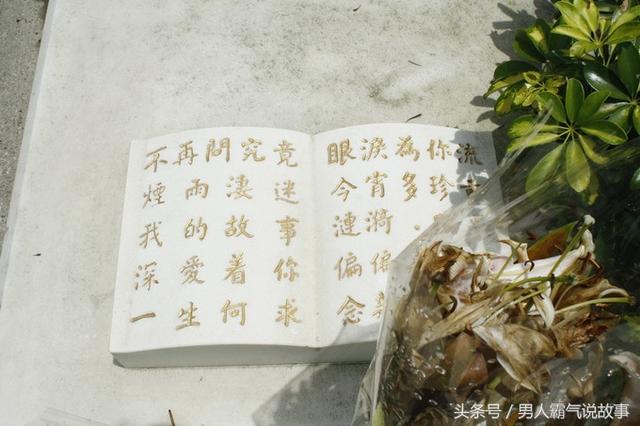 不再問究竟
煙雨淒迷
我的故事
深愛着你
一生何求
眼淚為你流
今宵多珍
漣漪
偏偏
念
头条号 / 男人霸气说故事